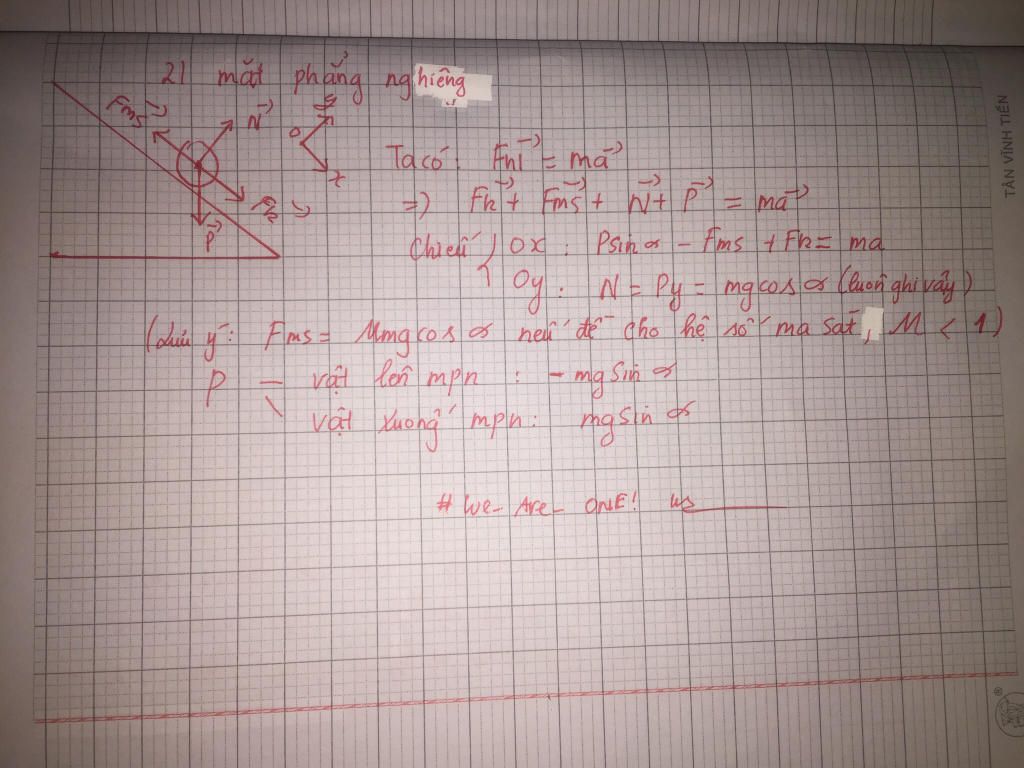 2) mặt phẳng nghiêng
Fms→ N→ y
O
x
Fk→
P→
Ta có: Fhl→ = ma→
=> Fk→ + Fms→ + N→ + P→ = ma→
Chiếu Ox: Psin α - Fms + Fk = ma
Oy: N = Py = mgcos α (luôn ghi vậy)
(Lưu ý: Fms = Mmgcos α nếu đề cho hệ số ma sát, M < 1)
P — vật lên mpn : - mgsin α
vật xuống mpn: mgsin α
# We_ Are_ ONE! us
TÂN VĨNH TIẾN